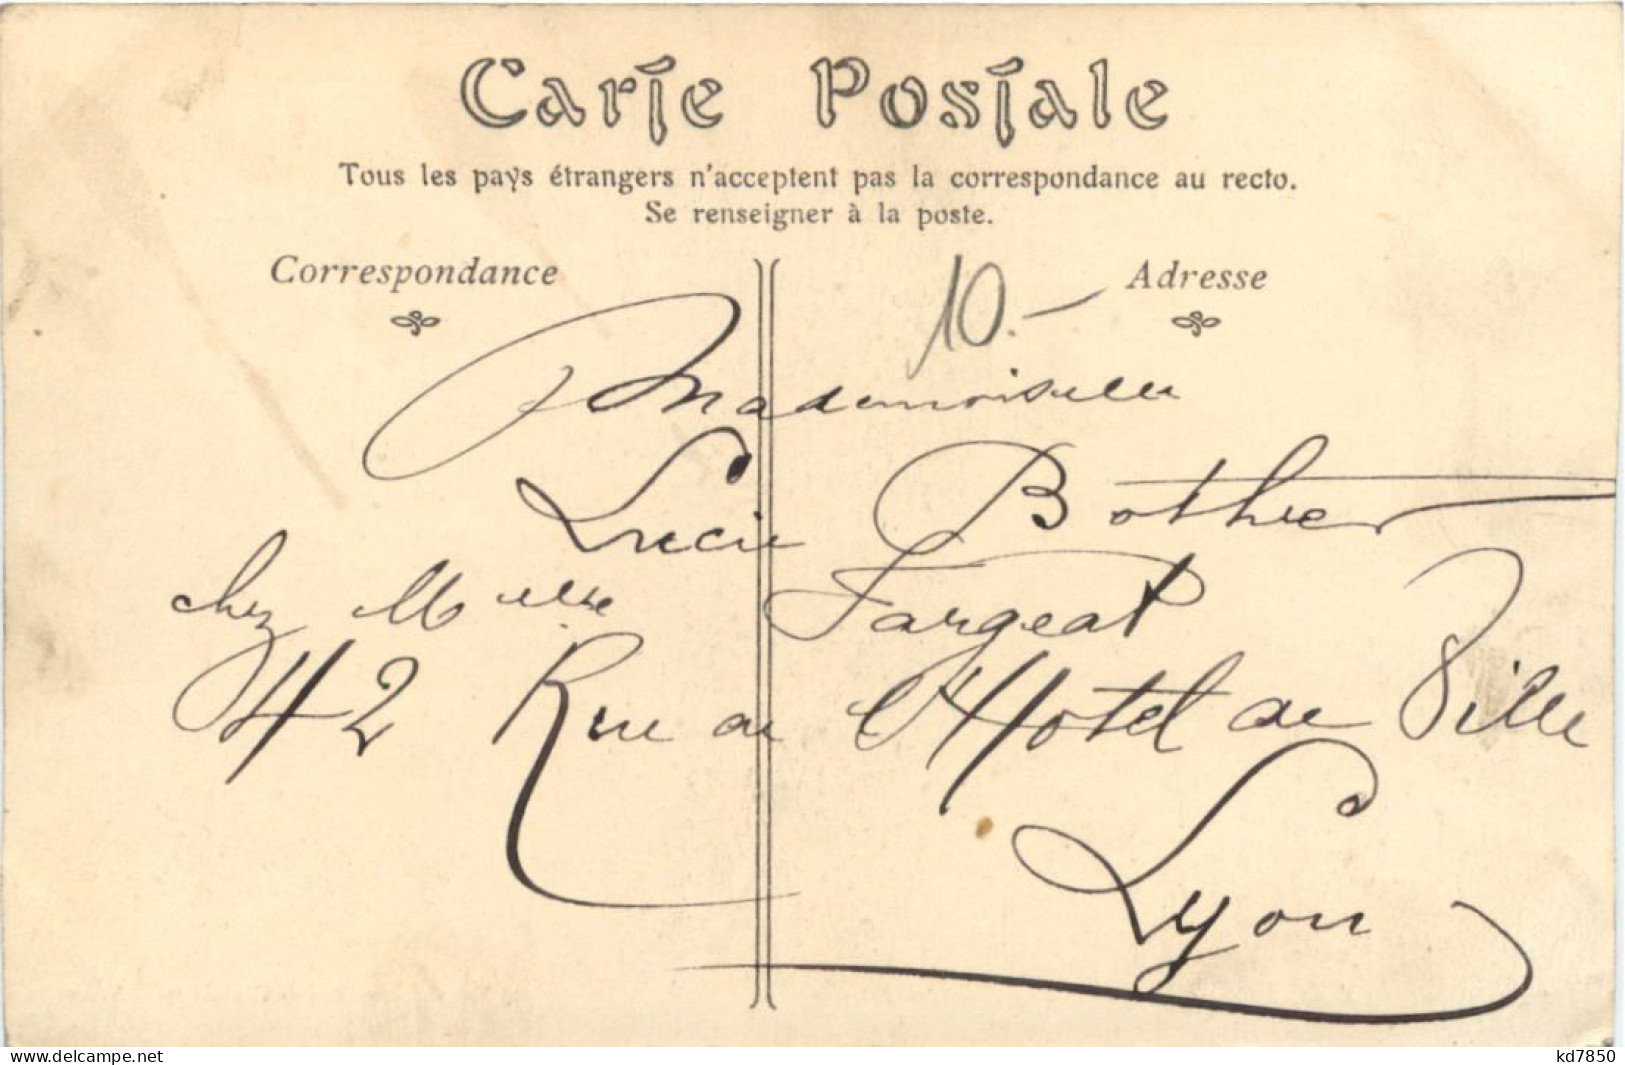 Carte Postale
Tous les pays étrangers n'acceptent pas la correspondance au recto.
Se renseigner à la poste.
Correspondance
Adresse
10.-
Mademoiselle
Lucie Bothier
chez Melle Fargeat
42 Rue de l'Hotel de Ville
Lyon
www.delcampe.net
kd7850